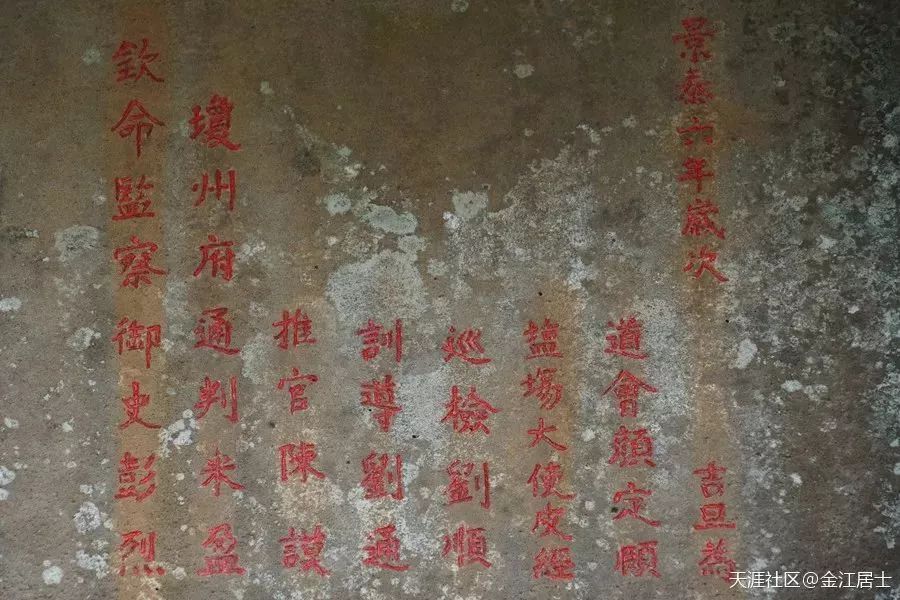 景泰六年歲次
吉旦為
道會定
塩塲大使皮經
巡檢劉順
訓導劉通
推官陳謨
瓊州府通判米盈
欽命監察御史彭烈
天涯社区@金江居士